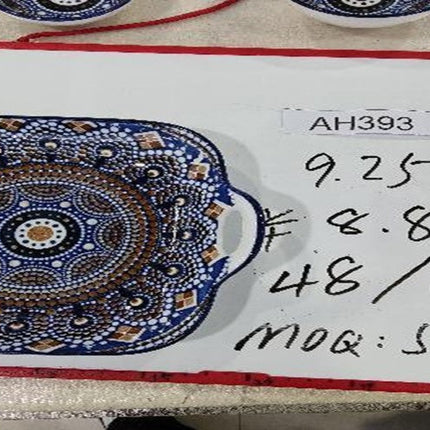 AH393
9.25
8.8
48/
MOQ: